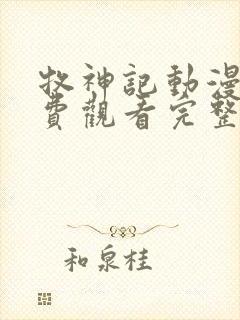 牧神記動漫
費觀看完整
和泉桂